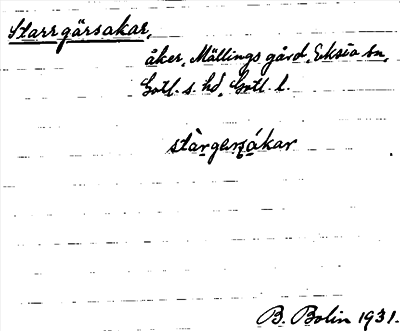 Starrgärsakar,
åker, Mällings gård, Eksta sn,
Gotl. s. hd, Gotl. l.
stàrgεrʂákar
B. Bolin 1931.